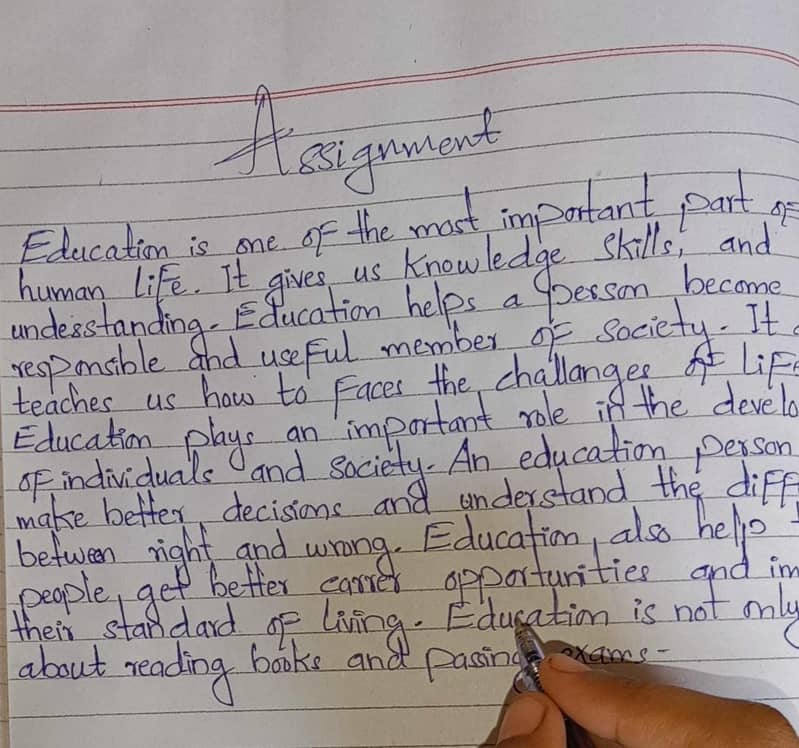 Assignment
Education is one of the most important part of
human life. It gives us knowledge skills, and
understanding. Education helps a person become
responsible and useful member of society. It
teaches us how to faces the challanges of life
Education plays an important role in the develo
of individuals and society. An education person
make better decisions and understand the diff
between right and wrong. Education also help
people get better carrer opportunities and im
their standard of living. Education is not only
about reading books and passing exams-